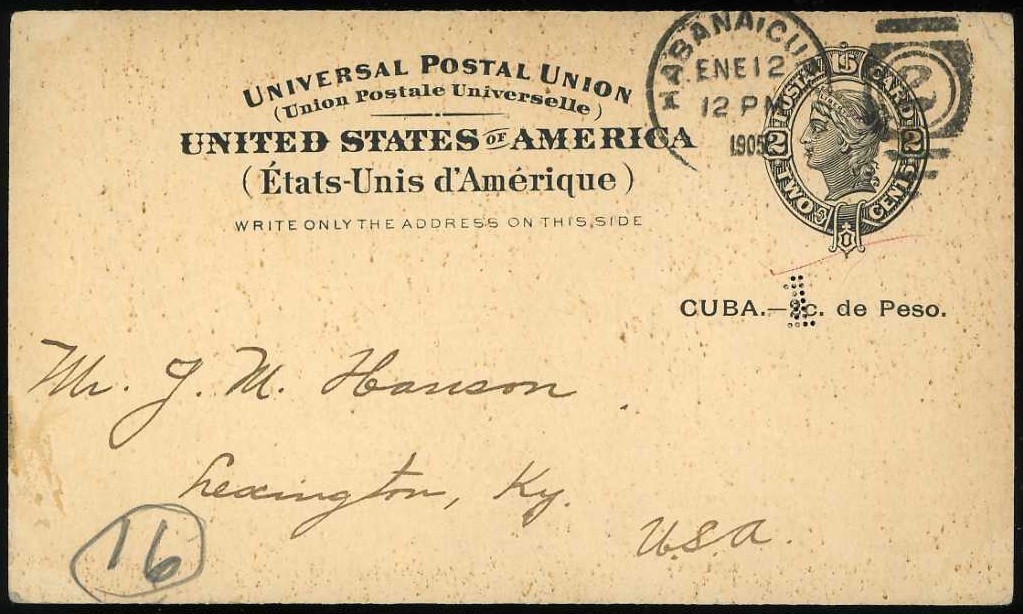 UNIVERSAL POSTAL UNION
(Union Postale Universelle)
UNITED STATES OF AMERICA
(États-Unis d'Amérique)
WRITE ONLY THE ADDRESS ON THIS SIDE
HABANA
ENE 12
12 PM
1905
POSTAL CARD
2 2
TWO CENTS
CUBA.—1c. de Peso.
Mr. J. M. Hanson
Lexington, Ky.
U.S.A.
16